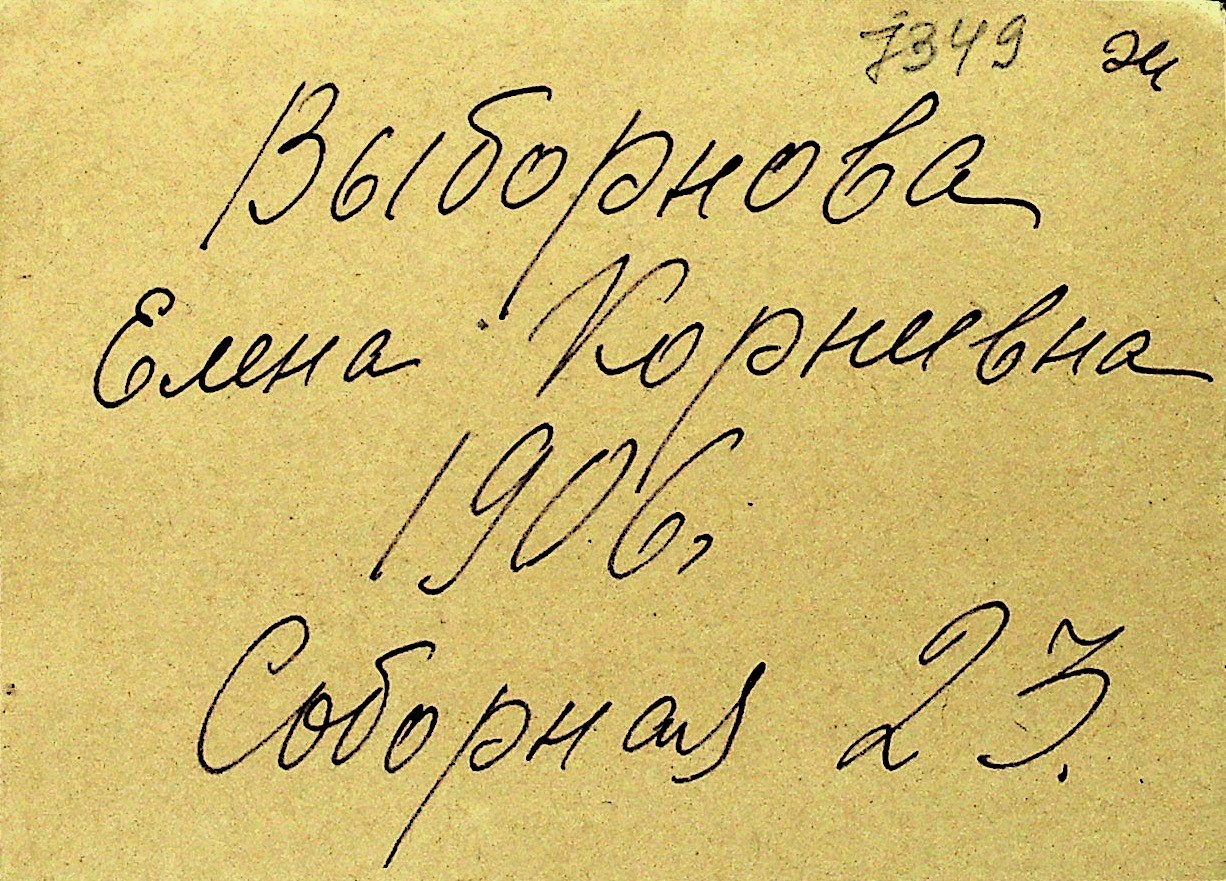 7349 эи
Выборнова
Елена Корнеевна
1906,
Соборная 23.